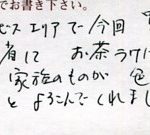 でお書き下さい。
ビス エリアで 今回
者に お茶
家族のものが
とよろこんでくれまし